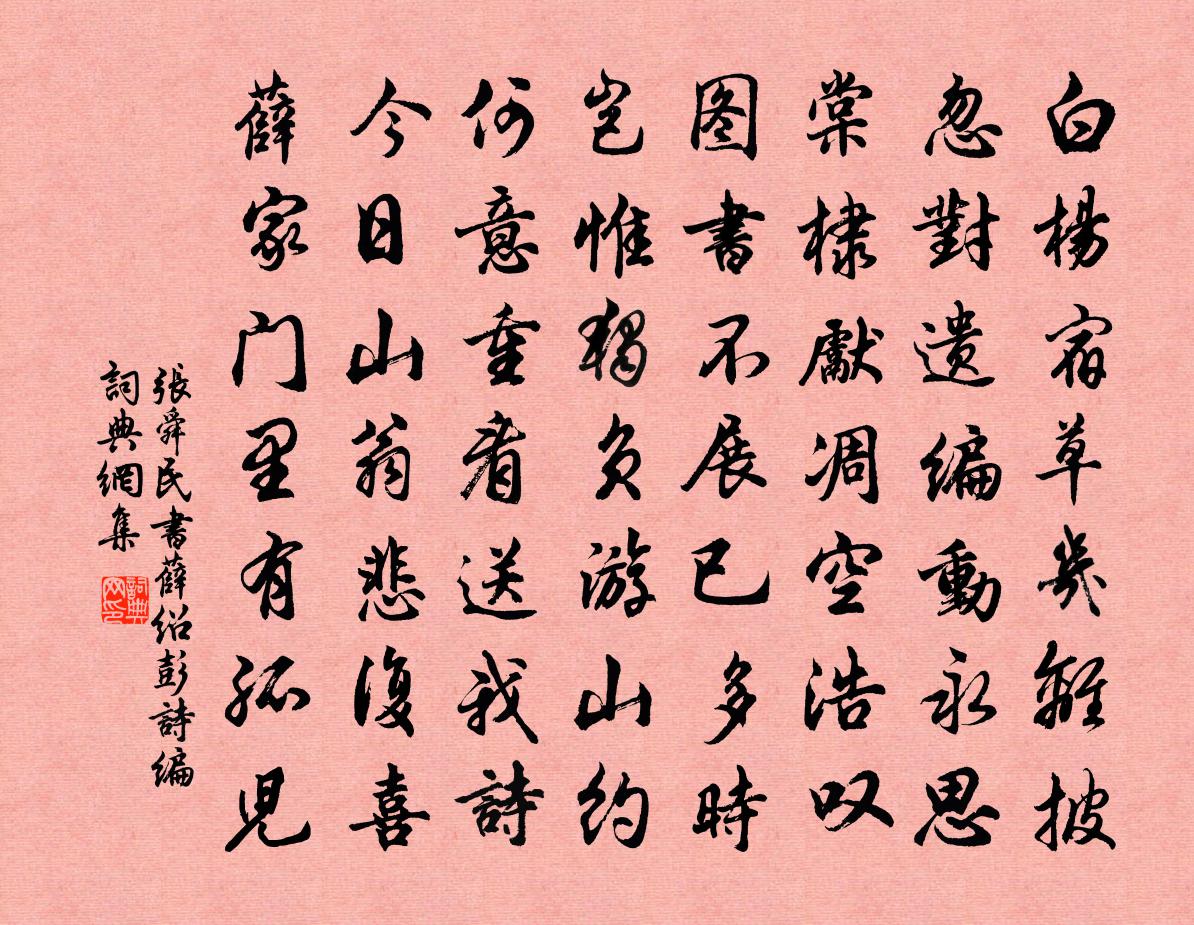 白楊宿草幾離披
忽對遺编動永思
棠棣獻凋空浩叹
图書不展已多時
岂惟獨负游山约
何意重看送我詩
今日山翁悲復喜
薛家门里有孤児
張舜民書薛绍彭詩编
詞典網集
詞典网印